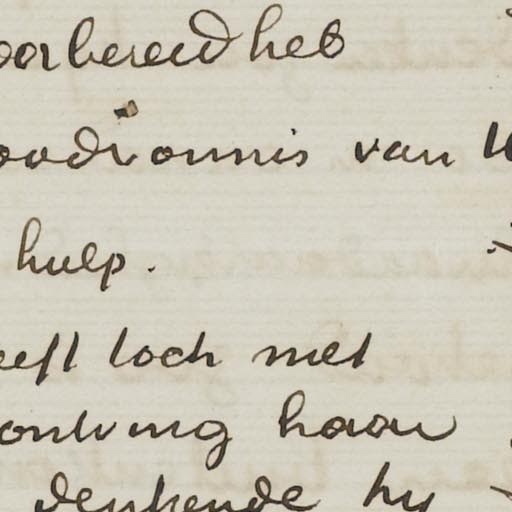 oorbereid heb
oodvonnis van
hulp.
eeft toch met
ontving haar
denkende hy